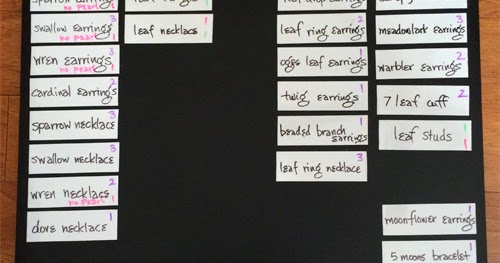 sparrow earrings
no pearl 1
swallow earrings 3
no pearl 1
wren earrings 3
no pearl 1
cardinal earrings 2
sparrow necklace 3
swallow necklace 3
wren necklace 2
no pearl 1
dove necklace 1
leaf necklace 1
1
leaf ring earrings 2
leaf earrings 1
twig earrings 1
beaded branch earrings 1
leaf ring necklace 3
meadowlark earrings 3
warbler earrings 2
7 leaf cuff 2
leaf studs 1
1
moonflower earrings 1
5 moons bracelet 1